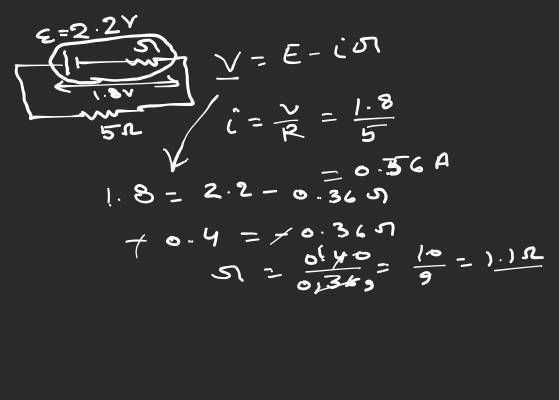 ε=2.2V
r
1.8V
5Ω
V = E - ir
i = V/R = 1.8/5
= 0.36 A
1.8 = 2.2 - 0.36 r
+ 0.4 = - 0.36 r
r = 0.40/0.36 9 = 10/9 = 1.1Ω